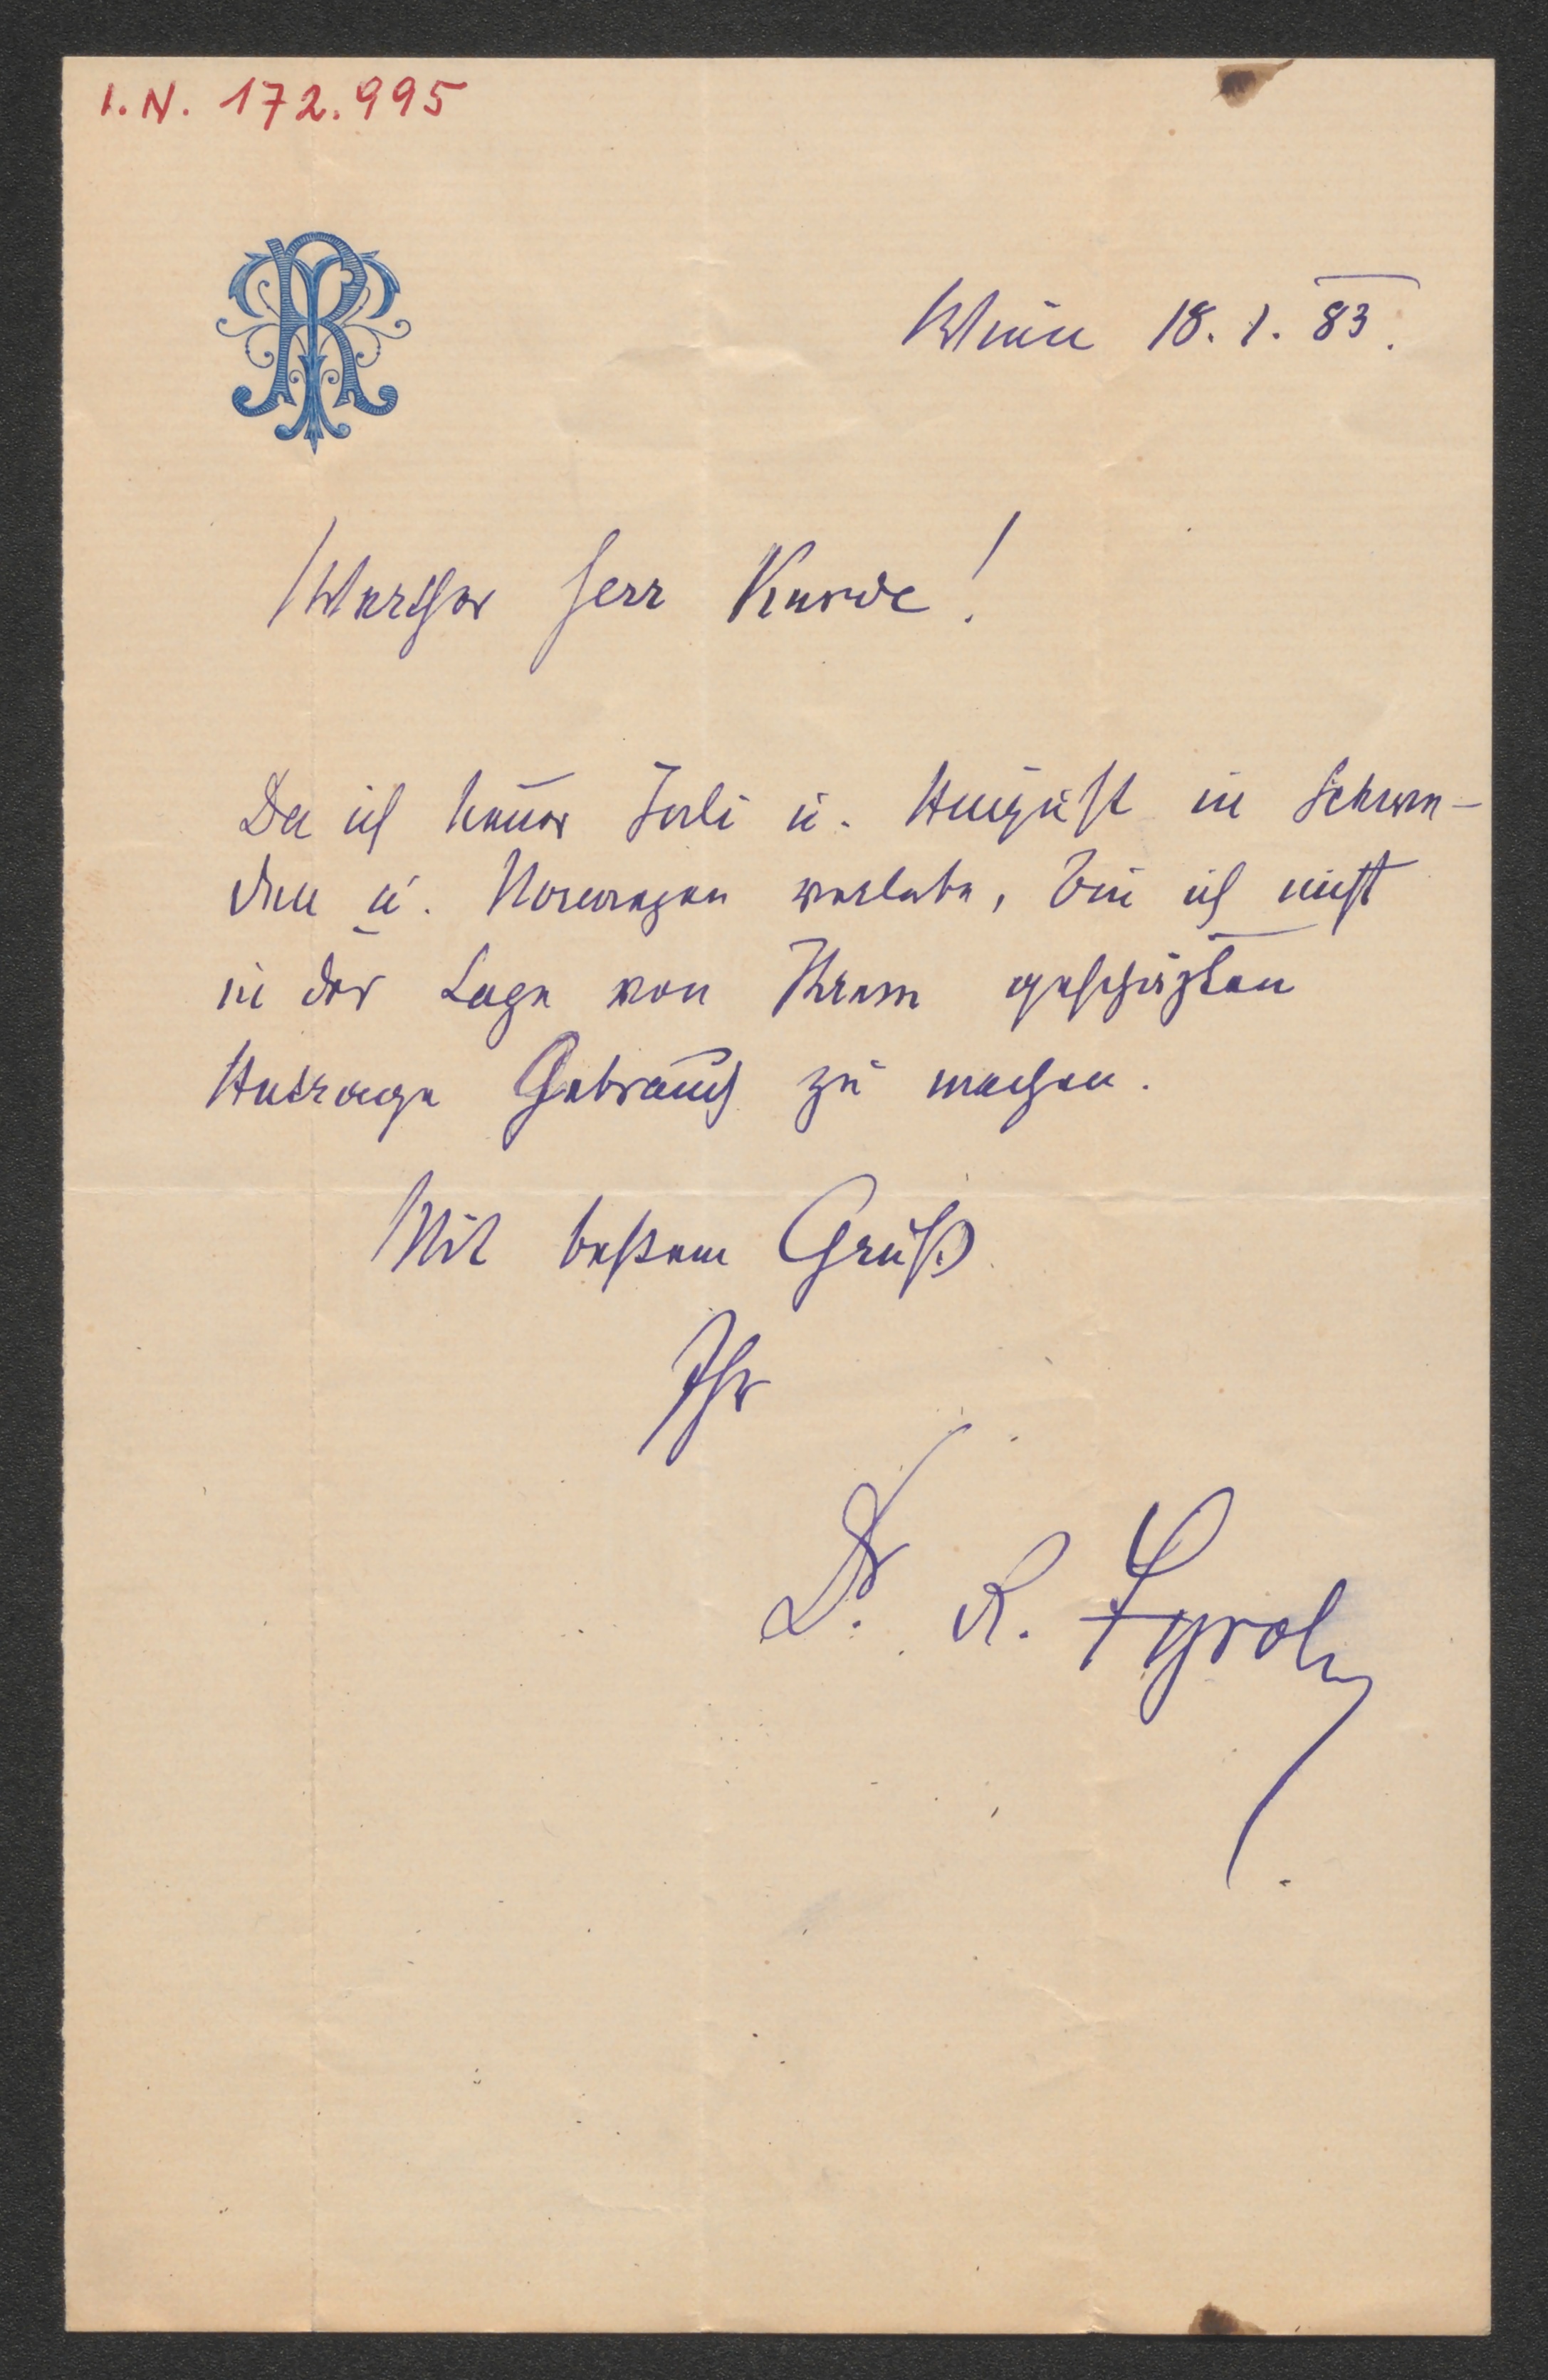 I. N. 172.995
Wien 18. 1. 83.
Werther Herr Kurde!
Da ich heuer Juli u. August in Schwe-
den u. Norwegen verlebe, bin ich nicht
in der Lage von Ihrem geschäzten
Antrage Gebrauch zu machen.
Mit bestem Gruß
Ihr
Dr. R. Tyrolt